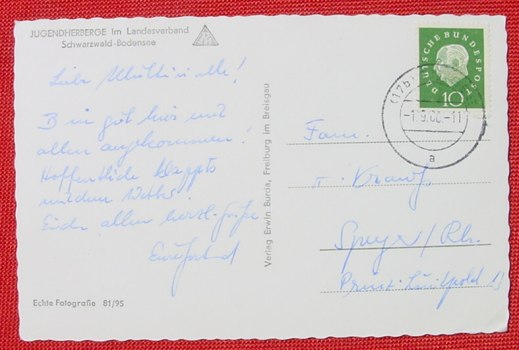 JUGENDHERBERGE im Landesverband
Schwarzwald-Bodensee
Liebe
B in gut hier und
allen angekommen!
Hoffentlich klappts
mit dem
Euch allen herzl. Grüße
Echte Fotografie 81/95
Verlag Erwin Burda, Freiburg im Breisgau
DEUTSCHE BUNDESPOST
10
(17b)
-1.9.60.-11
a
Fam.
Speyer/Rh.
Prinz Luitpold